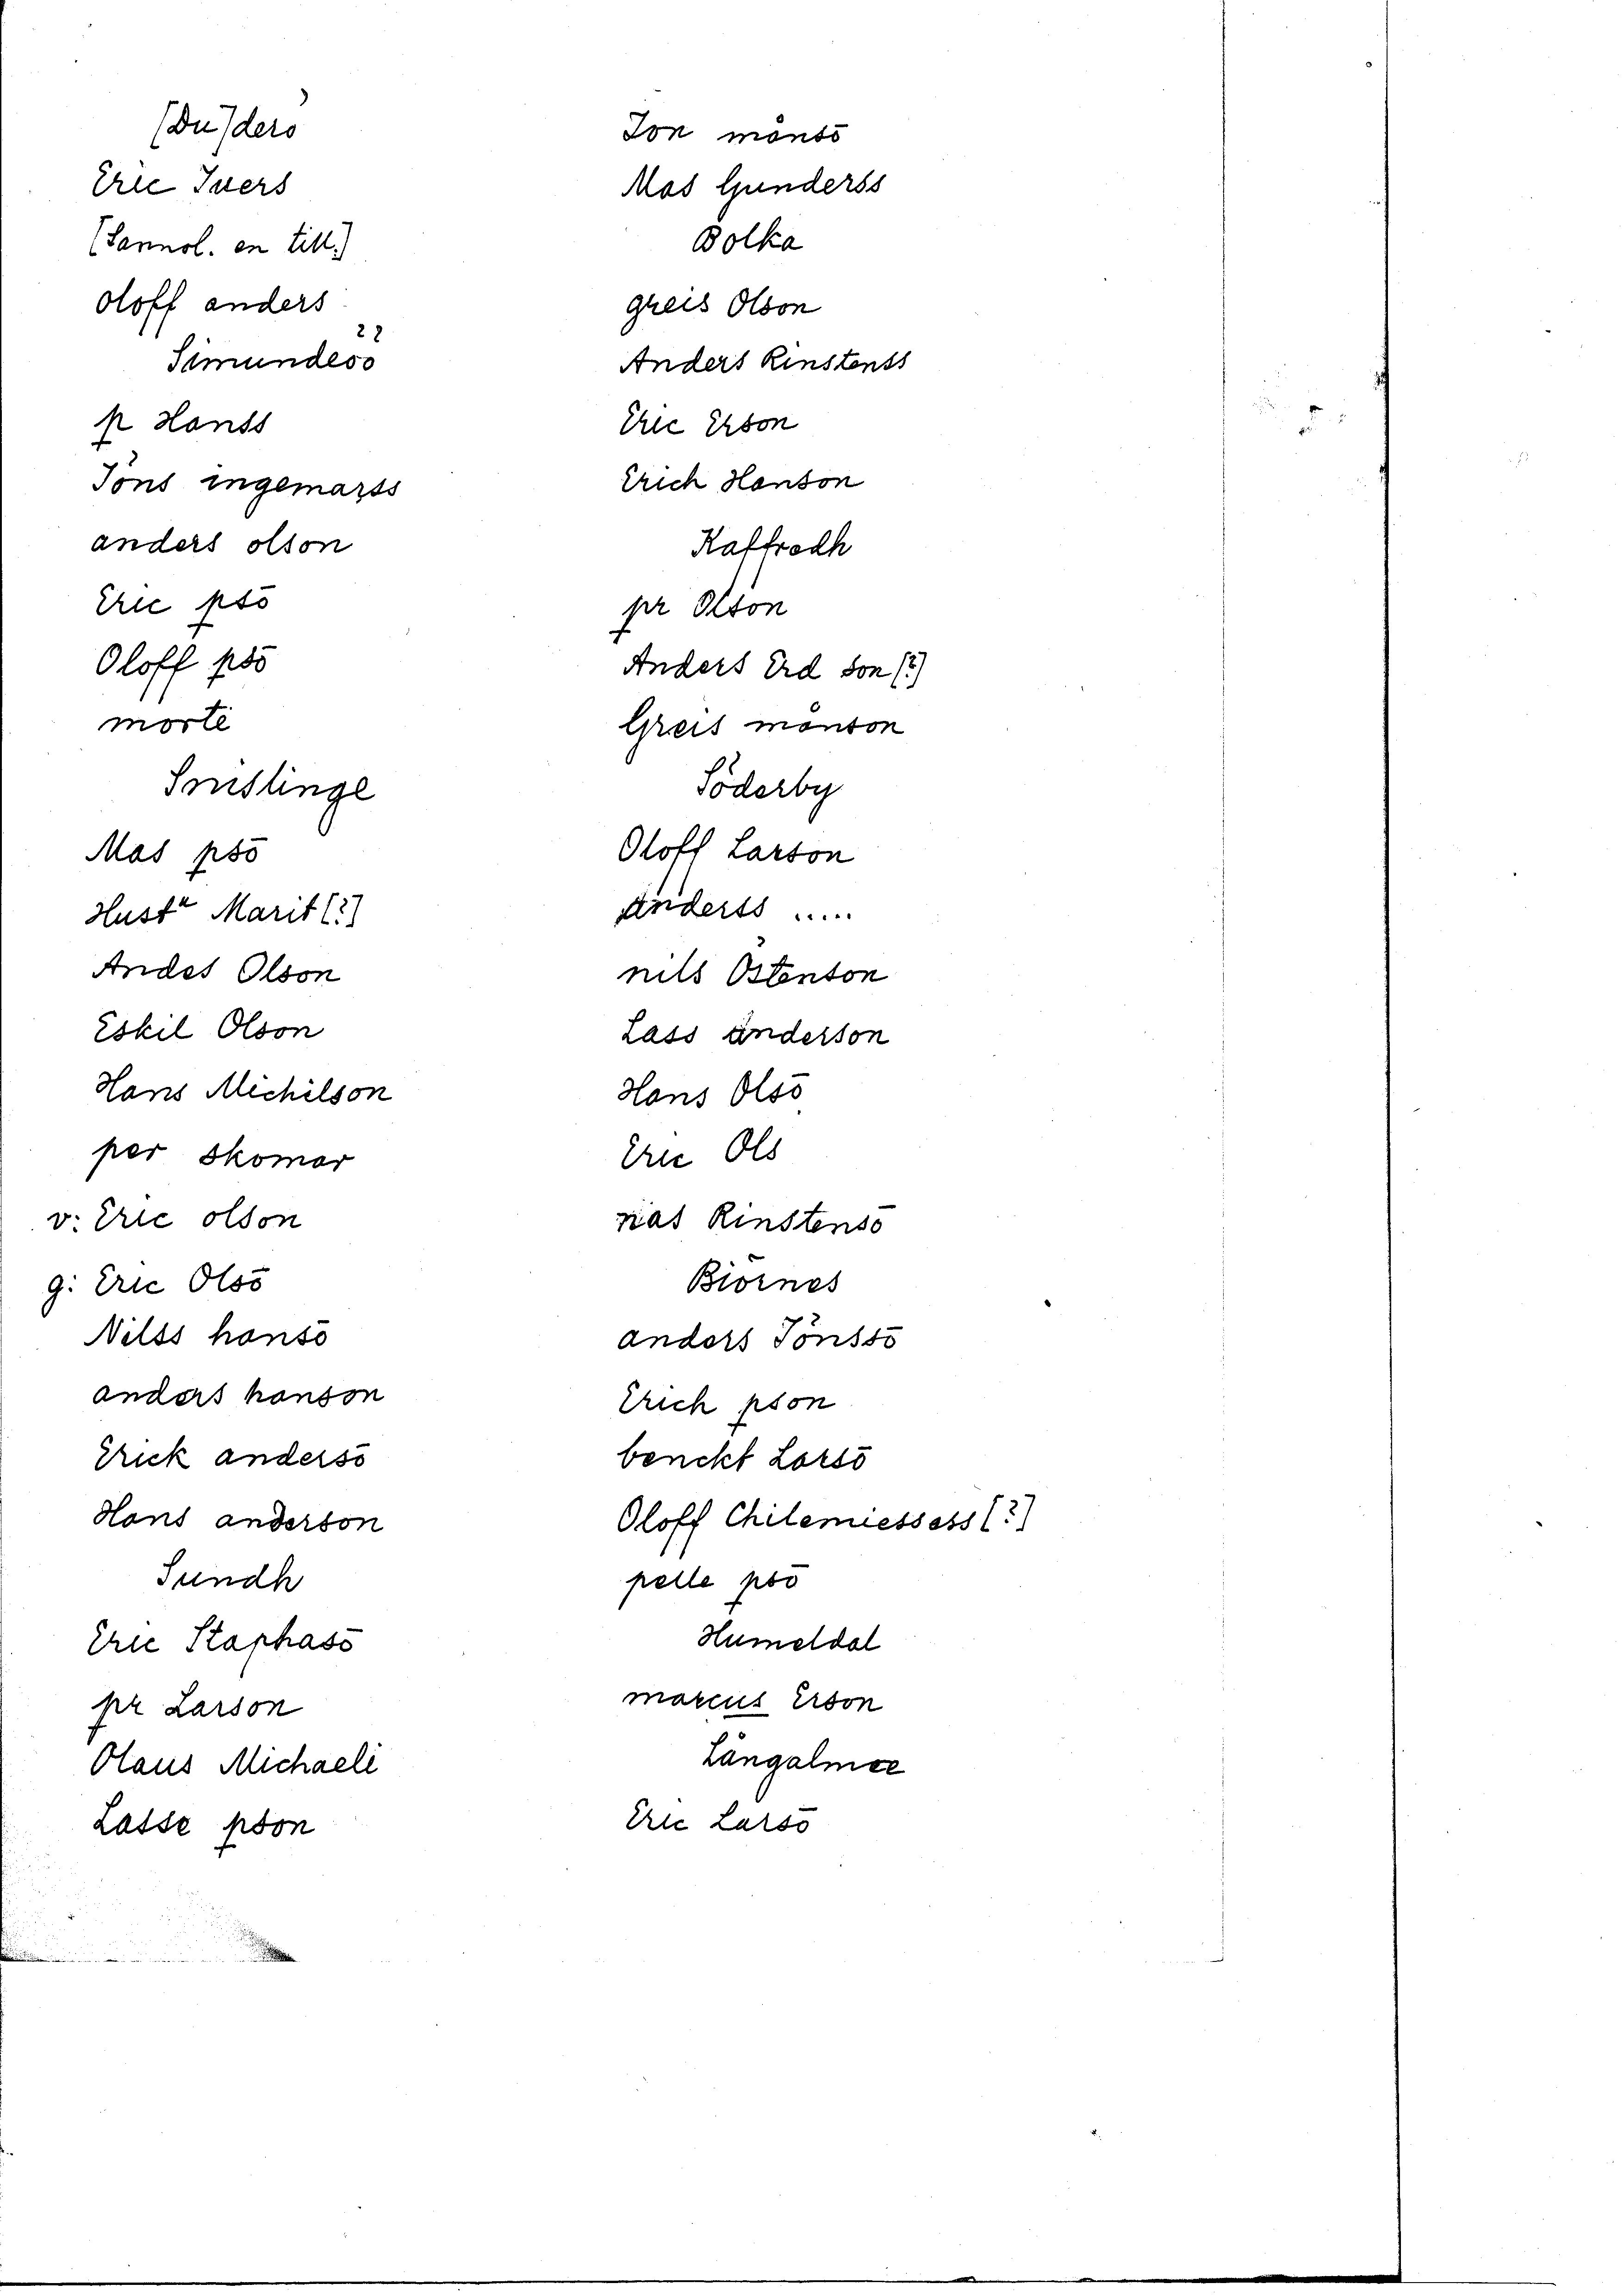 [Du]derö
Eric Iuers
[Sannol. en till.]
oloff anders
Simunderö
p Hanss
Jöns ingemarss
anders olson
Eric psō
Oloff psō
morte
Smislinge
Mas psō
Hustu Marit [?]
Andes Olson
Eskil Olson
Hans Michilson
per skomar
v: Eric olson
g: Eric Olsō
Nilss hansō
anders hanson
Erick andersō
Hans anderson
Sundh
Eric Staphasō
pr Larson
Olaus Michaeli
Lasse pson
Jon månsō
Mas Gunderss
Bolka
greis Olson
Anders Rinstenss
Eric Erson
Erich Hanson
Raffredh
pr Olson
Anders Erd son [?]
Greis månson
Söderby
Oloff Larson
änderss .....
nils Östenson
Lass änderson
Hans Olsō
Eric Ols
mas Rinstensō
Biörnes
anders Jönssō
Erich pson
benckt Larsō
Oloff Chilemiessess [?]
pelle psō
Humeldal
marcus Erson
Långalmee
Eric Larsō